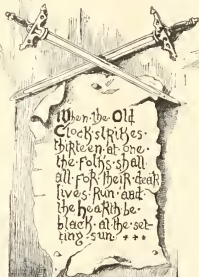 When·the·Old
Clock·strikes·
thirteen·at·one·
the·folks·shall
all·for·their·dear
lives·Run·and·
the·hearth·be·
black·at·the·set-
ting·sun·